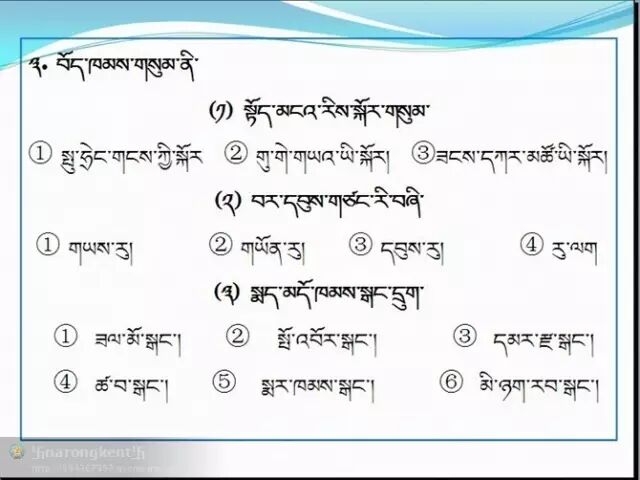 ༣. བོད་ཁམས་གསུམ་ནི་
(༡) སྟོད་མངའ་རིས་སྐོར་གསུམ་
① སྤུ་ཧྲེང་གངས་ཀྱི་སྐོར ② གུ་གེ་གཡའ་ཡི་སྐོར། ③ཟངས་དཀར་མཚོ་ཡི་སྐོར།
(༢) བར་དབུས་གཙང་རི་བཞི་
① གཡས་རུ། ② གཡོན་རུ། ③ དབུས་རུ། ④ རུ་ལག
(༣) སྨད་མདོ་ཁམས་སྒང་དྲུག་
① ཟལ་མོ་སྒང་། ② སྤོ་འབོར་སྒང་། ③ དམར་རྫ་སྒང་།
④ ཚ་བ་སྒང་། ⑤ སྨར་ཁམས་སྒང་། ⑥ མི་ཉག་རབ་སྒང་།
卐narongkent卐